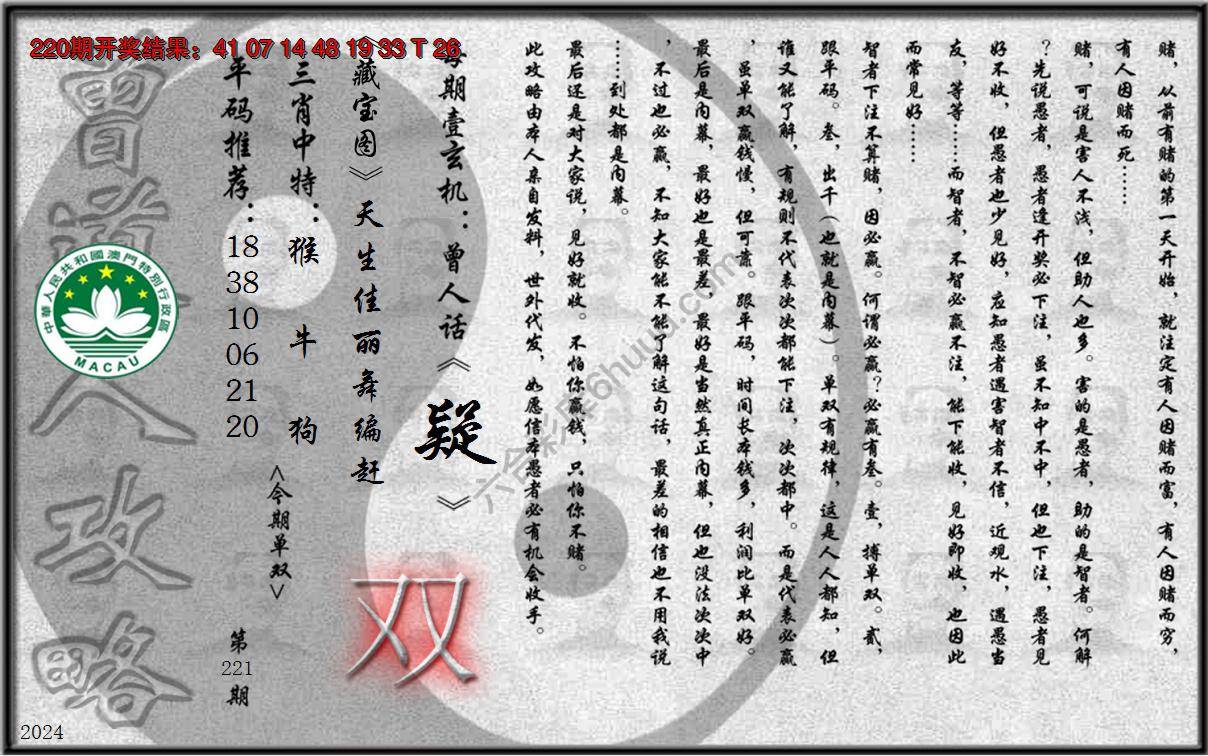 220期开奖结果：41 07 14 48 19 33 T 26
赌，从前有赌的第一天开始，就注定有人因赌而富，有人因赌而穷，
有人因赌而死……
赌，可说是害人不浅，但助人也多。害的是愚者，助的是智者。何解
？先说愚者，愚者逢开奖必下注，虽不知中不中，但也下注，愚者见
好不收，但愚者也少见好，应知愚者遇害智者不信，近观水，遇愚当
友，等等……而智者，不智必赢不注，能下能收，见好即收，也因此
而常见好……
智者下注不算赌，因必赢。何谓必赢？必赢有叁。壹，搏单双。贰，
跟平码。叁，出千（也就是内幕）。单双有规律，这是人人都知，但
谁又能了解，有规则不代表次次都能下注，次次都中。而是代表必赢
，虽单双赢钱慢，但可靠。跟平码，时间长本钱多，利润比单双好。
最后是内幕，最好也是最差，最好是当然真正内幕，但也没法次次中
，不过也必赢，不知大家能不能了解这句话，最差的相信也不用我说
……到处都是内幕。
最后还是对大家说，见好就收。不怕你赢钱，只怕你不赌。
此攻略由本人亲自发料，世外代发，如愿信本愚者必有机会收手。
每期壹玄机：曾人话《疑》
《藏宝图》天生佳丽舞编赶
三肖中特：猴 牛 狗
平码推荐：18 38 10 06 21 20
<今期单双>
双
第221期
曾道人攻略
中華人民共和國澳門特別行政區
MACAU
六合彩库6huuu.com
2024